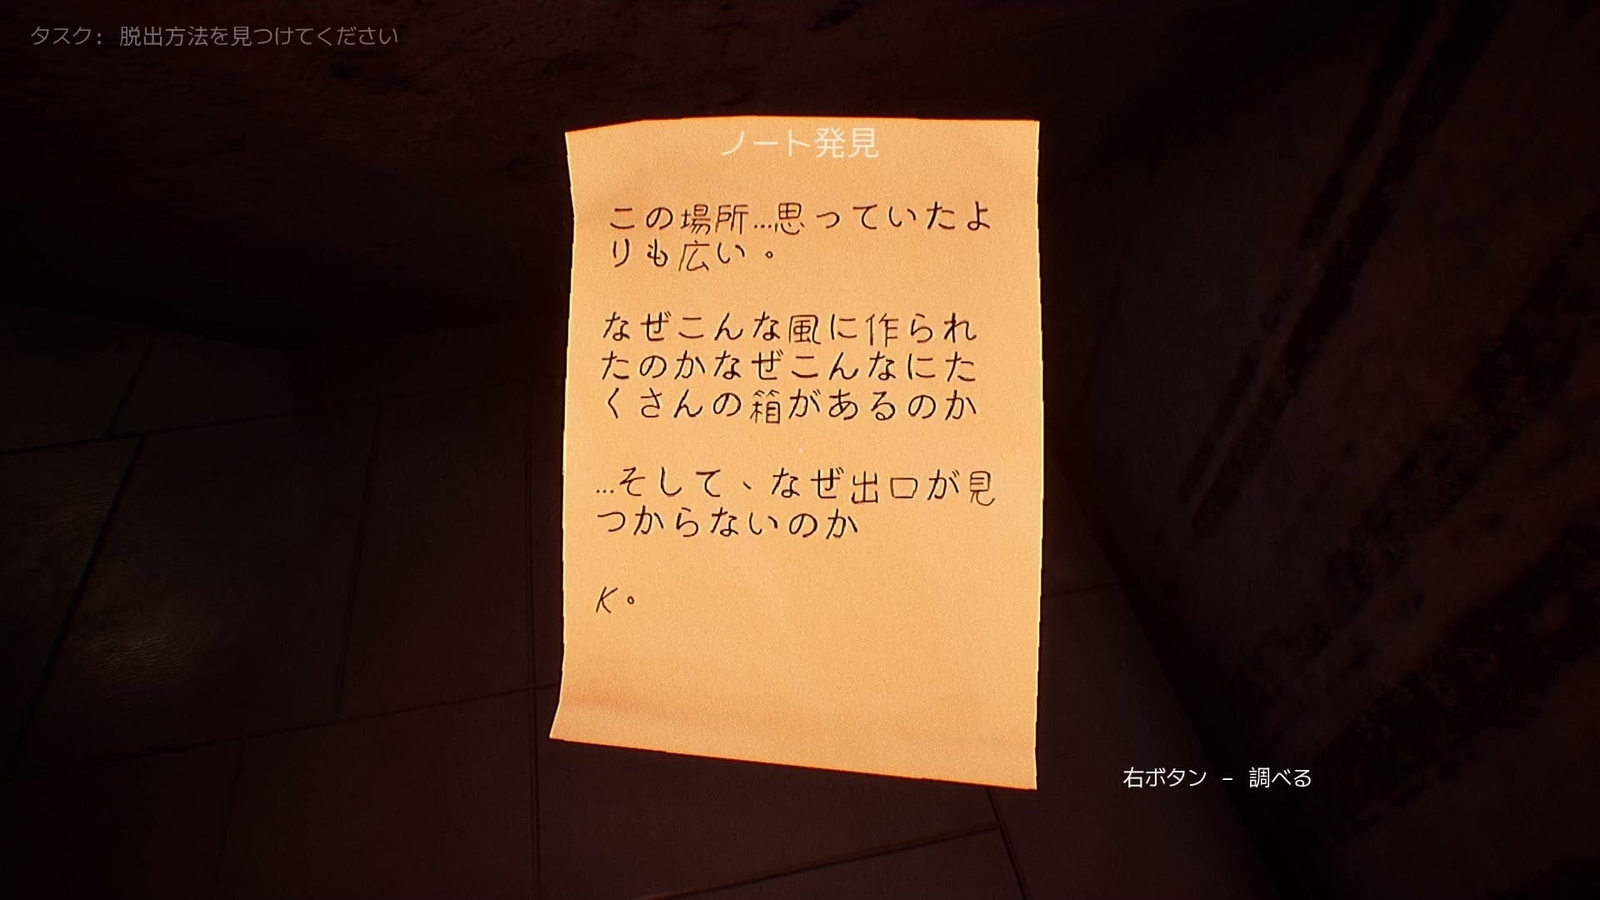 タスク: 脱出方法を見つけてください
ノート発見
この場所…思っていたよ
りも広い。
なぜこんな風に作られ
たのかなぜこんなにた
くさんの箱があるのか
…そして、なぜ出口が見
つからないのか
K。
右ボタン - 調べる